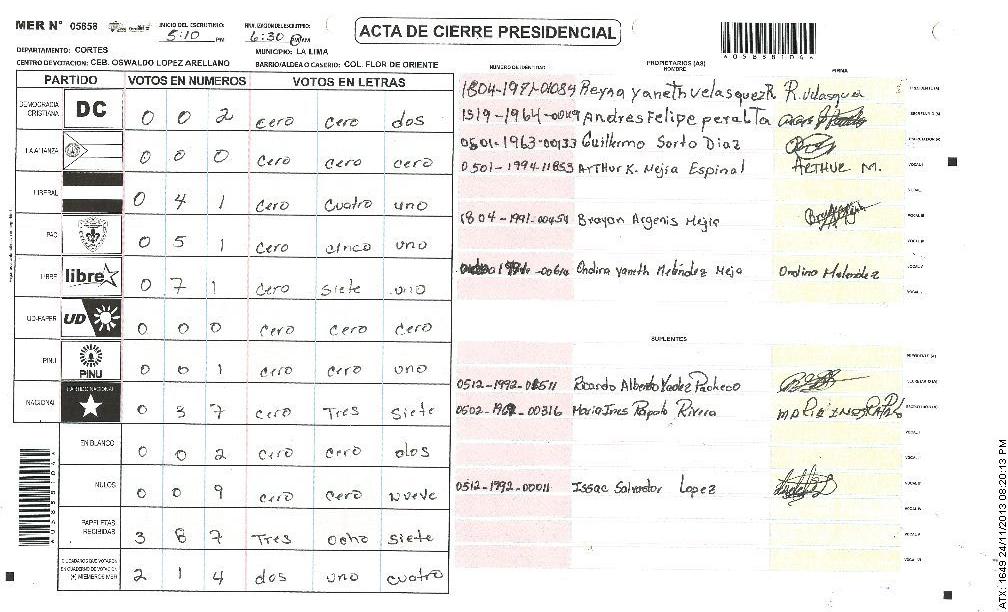 MER N° 05858
INICIO DEL ESCRUTINIO: 5:10 PM
FINALIZACION DEL ESCRUTINIO: 6:30 PM
ACTA DE CIERRE PRESIDENCIAL
A05858104
DEPARTAMENTO: CORTES
MUNICIPIO: LA LIMA
CENTRO DE VOTACION: CEB. OSWALDO LOPEZ ARELLANO
BARRIO/ALDEA O CASERIO: COL. FLOR DE ORIENTE
PARTIDO VOTOS EN NUMEROS VOTOS EN LETRAS
DEMOCRACIA CRISTIANA DC 0 0 2 cero cero dos
LA ALIANZA 0 0 0 cero cero cero
LIBERAL 0 4 1 cero cuatro uno
PAC 0 5 1 cero cinco uno
LIBRE libre 0 7 1 cero siete uno
UD-FAPER UD 0 0 0 cero cero cero
PINU PINU 0 0 1 cero cero uno
NACIONAL PARTIDO NACIONAL 0 3 7 cero Tres siete
EN BLANCO 0 0 2 cero cero dos
NULOS 0 0 9 cero cero nueve
PAPELETAS RECIBIDAS 3 8 7 Tres ocho siete
CIUDADANOS QUE VOTARON EN CUADERNO DE VOTACION (+) MIEMBROS MER 2 1 4 dos uno cuatro
NUMERO DE IDENTIDAD PROPIETARIOS (AS) NOMBRE FIRMA
1804-1971-01089 Reyna yaneth velasquez R. R. Velasquez PRESIDENTE (A)
1519-1964-00049 Andres Felipe peralta SECRETARIO (A)
0801-1963-00133 Guillermo Sorto Diaz ESCRUTADOR (A)
0501-1994-11853 ArTHur K. Mejia Espinal ARTHUR M. VOCAL I
VOCAL II
1804-1991-00454 Brayan Argenis Mejia VOCAL III
VOCAL IV
Ondina yaneth Meléndez Mejia Ondina Melendez VOCAL V
SUPLENTES
PRESIDENTE (A)
0512-1992-01511 Ricardo Alberto Pacheco SECRETARIO (A)
Maria Ines Rivera ESCRUTADOR (A)
VOCAL I
0512-1992-00011 Issac Salvador Lopez
VOCAL V
ATX: 1649 24/11/2013 08:20:13 PM